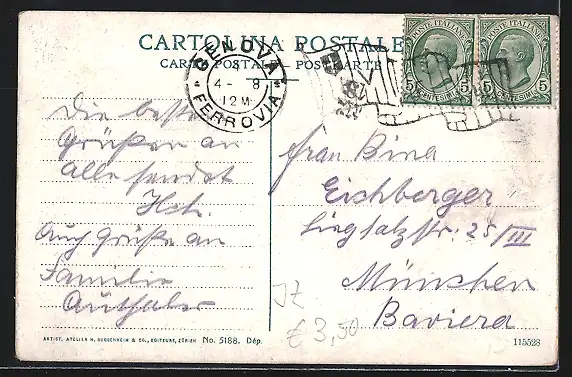 CARTOLINA POSTALE
CARTE POSTALE - POSTCARTE
GENOVA
4 - 8
12 M
FERROVIA
POSTE ITALIANE
5 CENTESIMI 5
POSTE ITALIANE
5 CENTESIMI 5
Die besten
Grüßen an
alle sendet
Hch.
Auch Grüße an
Familie
Frau Bina
Eichberger
25/III
München
Baviera
It
€ 3,50
ARTIST. ATELIER H. GUGGENHEIM & CO., EDITEURS, ZÜRICH No. 5188. Dép.
115528